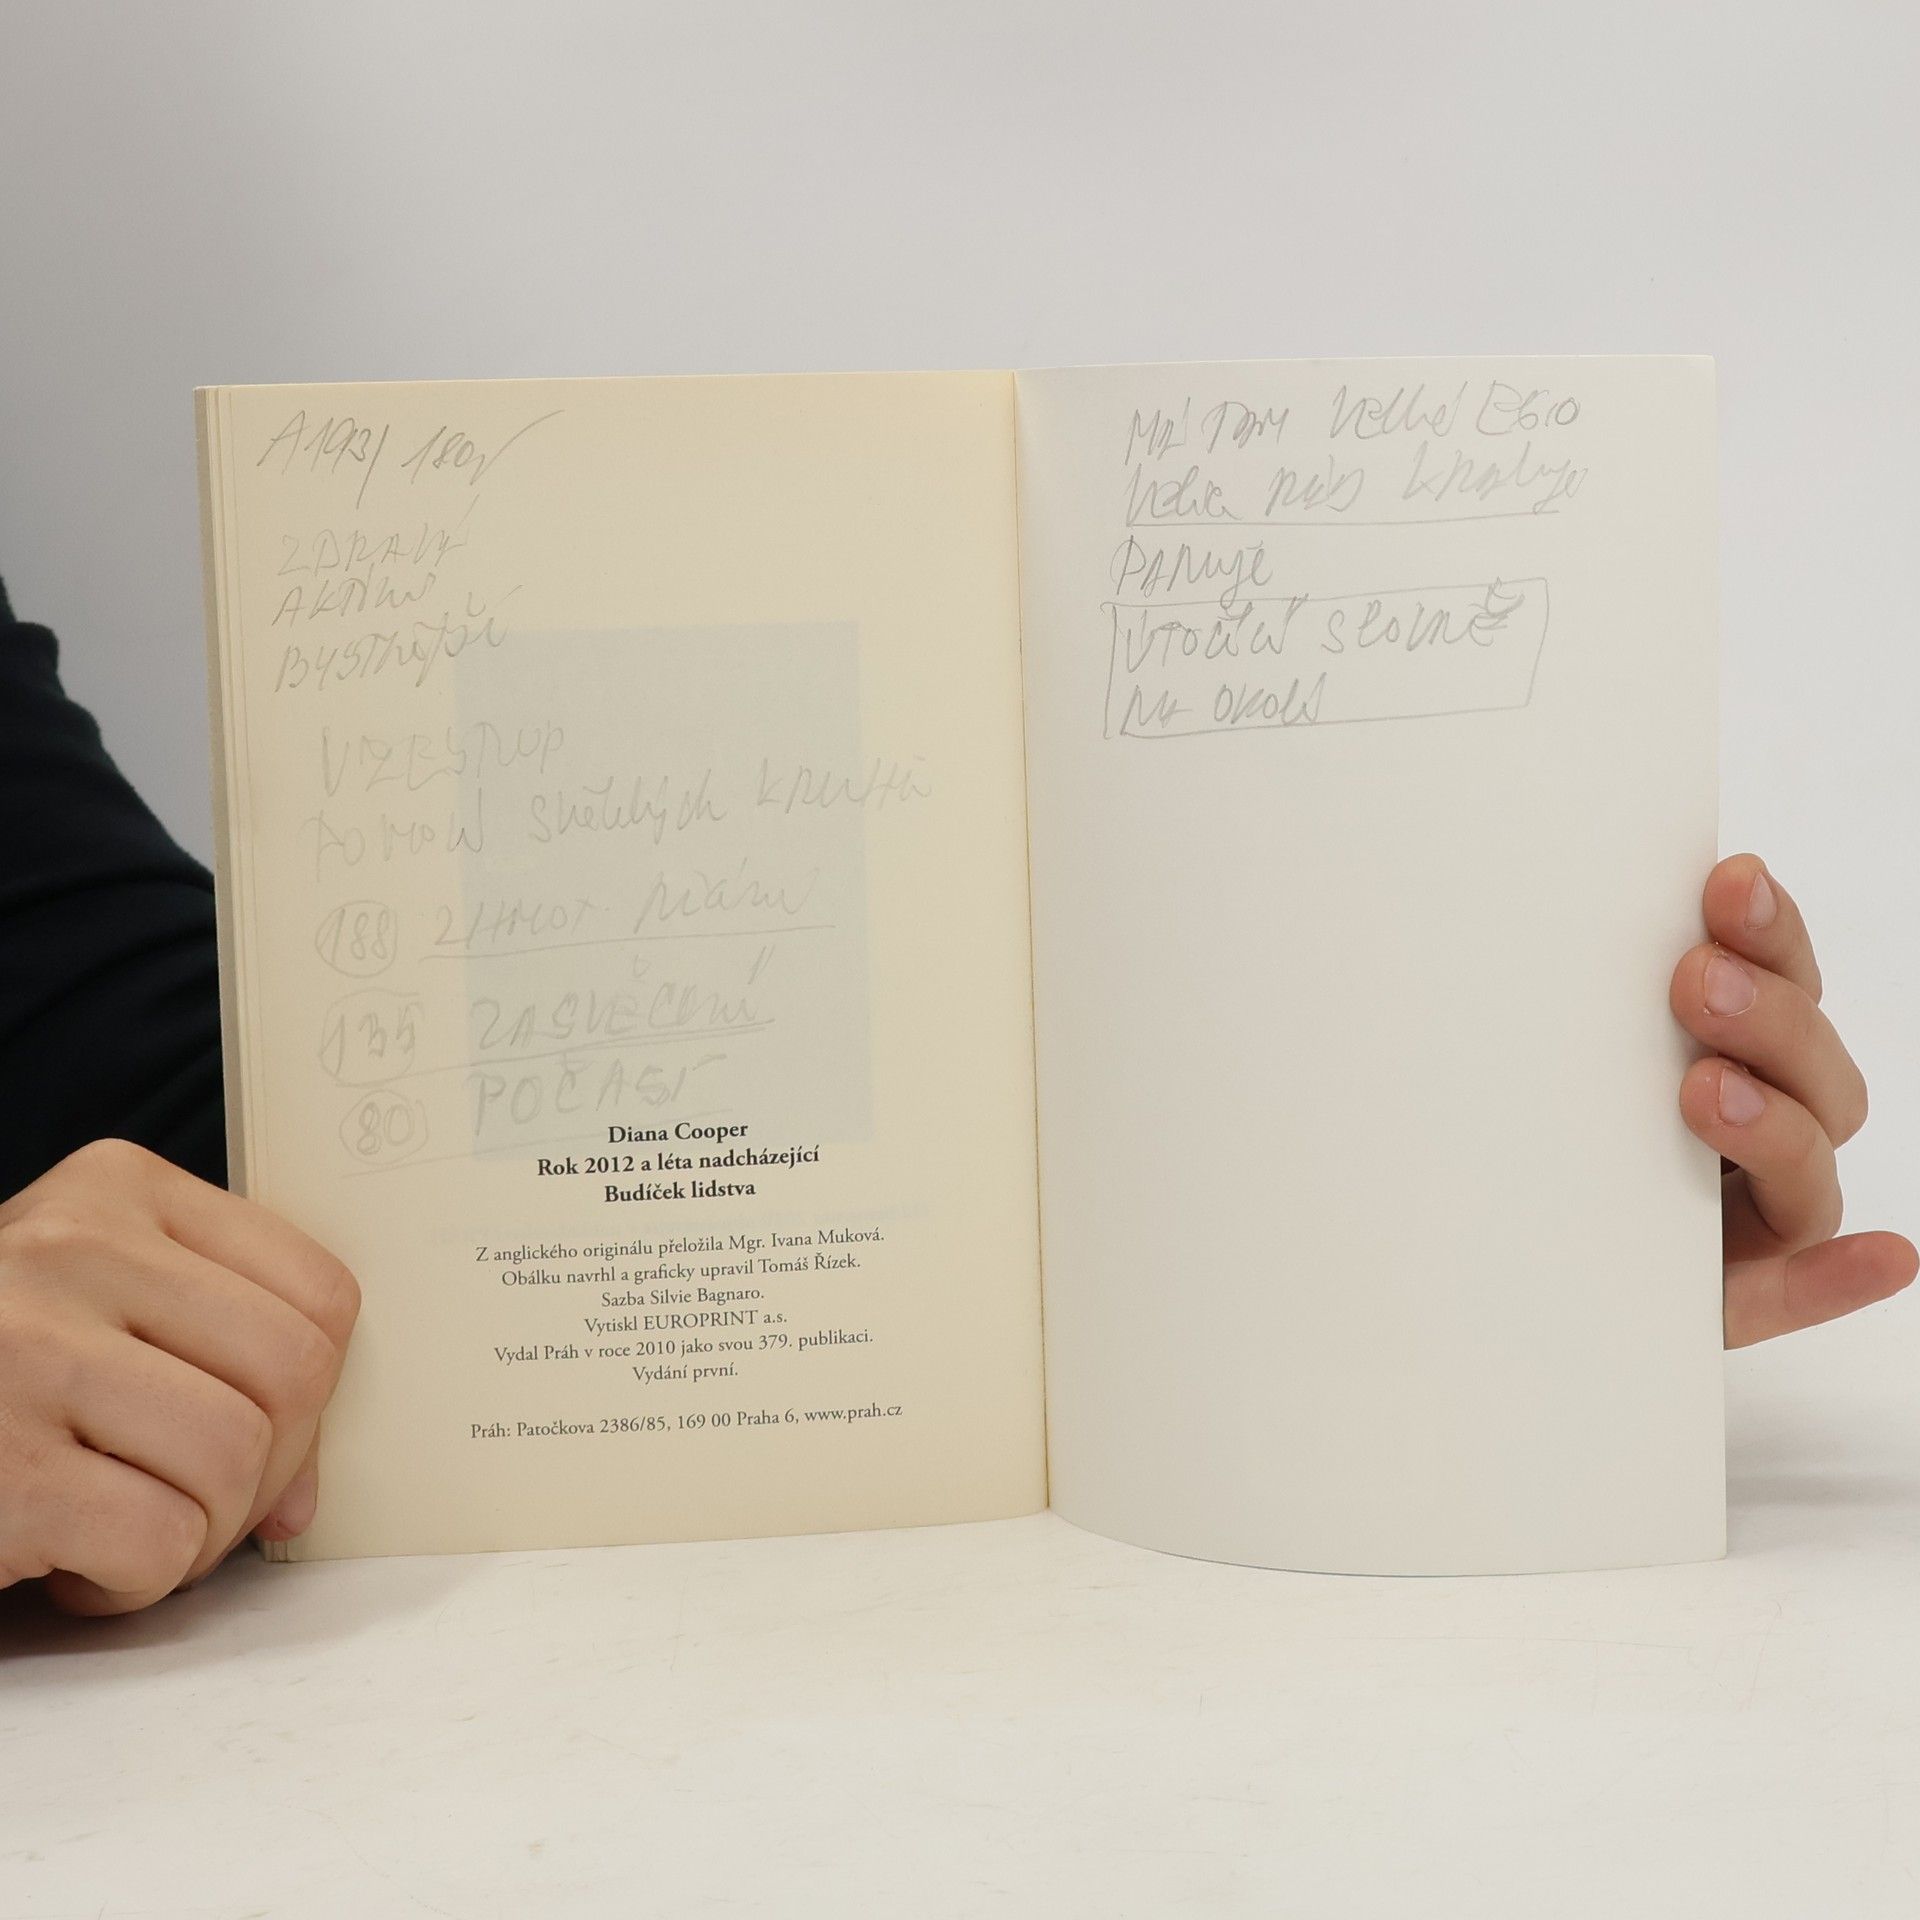 A193/ 180/
ZDRAVÝ
AKTIVNÍ
BYSTŘEJŠÍ
VZESTUP
POMOCÍ SVĚTELNÝCH KRUHŮ
188 ZHMOT. PŘÁNÍ
135 ZASVĚCENÍ
80 POČASÍ
Diana Cooper
Rok 2012 a léta nadcházející
Budíček lidstva
Z anglického originálu přeložila Mgr. Ivana Muková.
Obálku navrhl a graficky upravil Tomáš Řízek.
Sazba Silvie Bagnaro.
Vytiskl EUROPRINT a.s.
Vydal Práh v roce 2010 jako svou 379. publikaci.
Vydání první.
Práh: Patočkova 2386/85, 169 00 Praha 6, www.prah.cz
MÁ TAM VELKÉ EGO
PANUJE
ÚTOČÍ SLOVNĚ
NA OKOLÍ